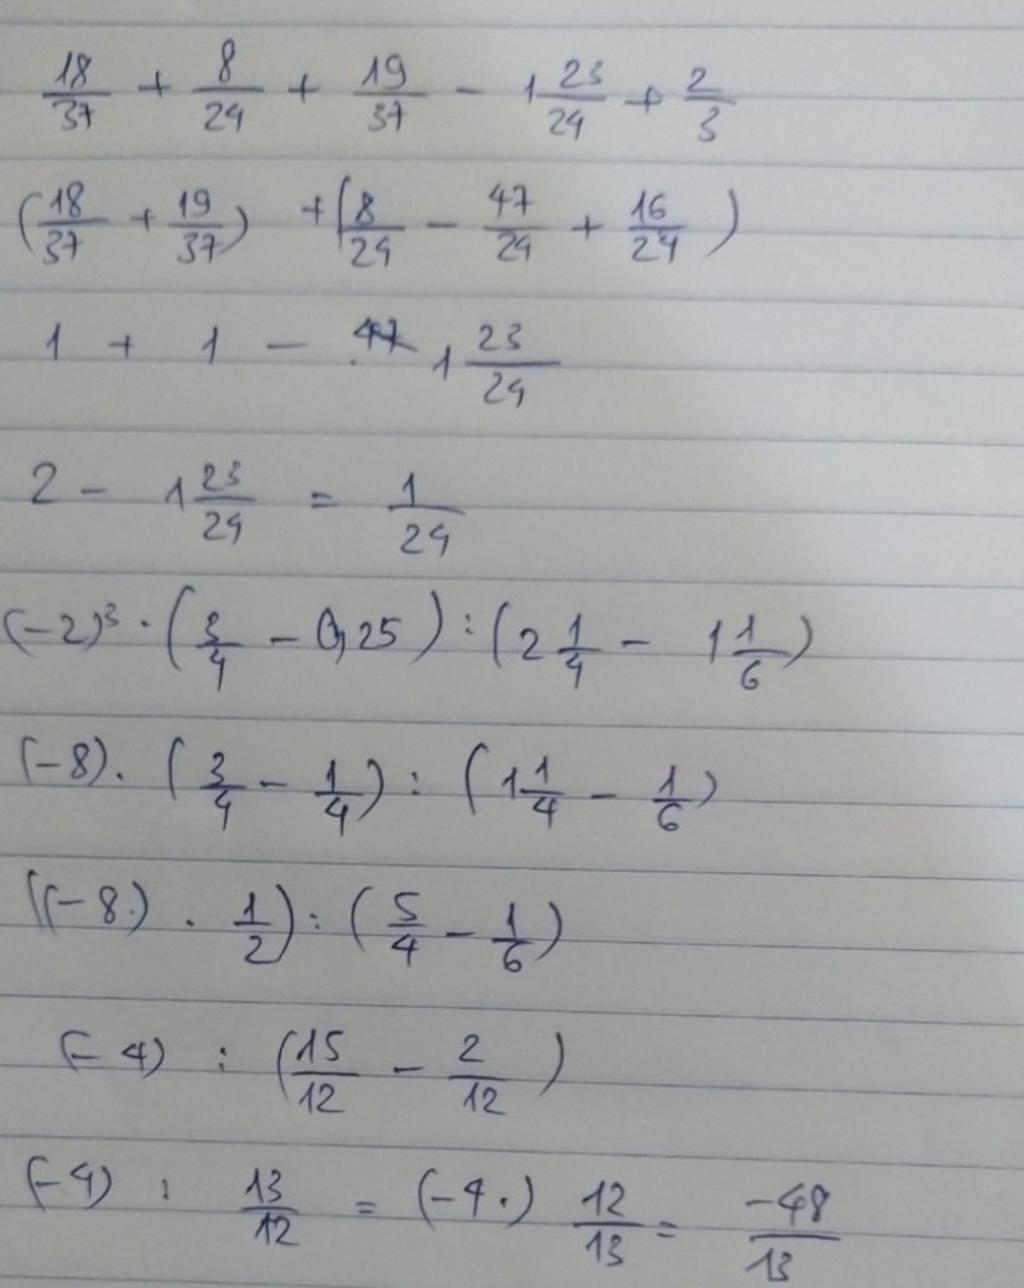 18/37 + 8/24 + 19/37 - 1 23/24 + 2/3
(18/37 + 19/37) + (8/24 - 47/24 + 16/24)
1 + 1 - 1 23/24
2 - 1 23/24 = 1/24
(-2)³ · (3/4 - 0,25) : (2 1/4 - 1 1/6)
(-8) . (3/4 - 1/4) : (1 1/4 - 1/6)
((-8.) . 1/2) : (5/4 - 1/6)
(-4) : (15/12 - 2/12)
(-4) : 13/12 = (-4.) 12/13 = -48/13